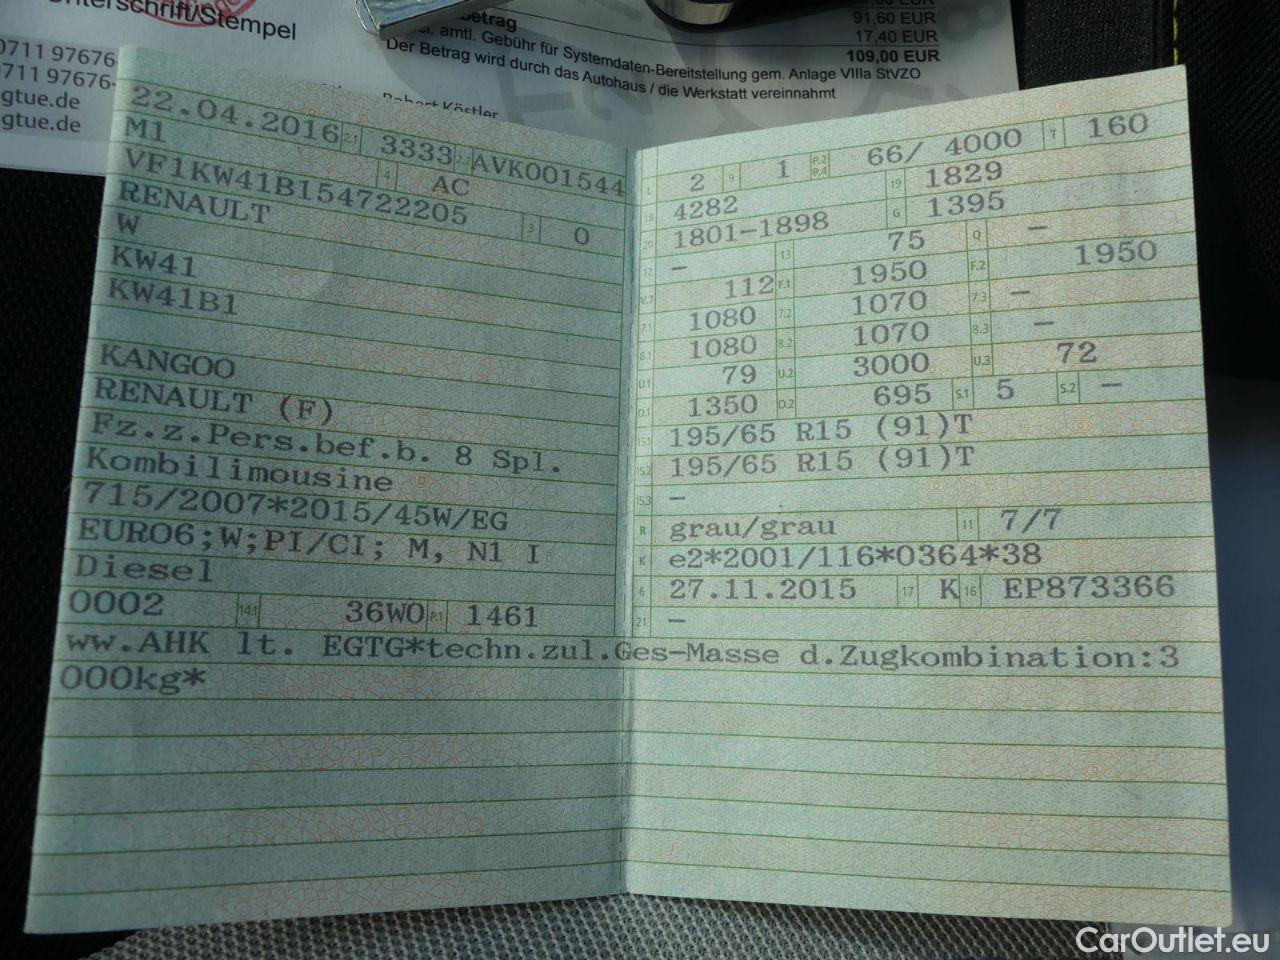 nterschrift/Stempel
0711 97676
0711 97676-
gtue.de
gtue.de
betrag
91,60 EUR
amtl. Gebühr für Systemdaten-Bereitstellung gem. Anlage VIIIa StVZO
17,40 EUR
Der Betrag wird durch das Autohaus / die Werkstatt vereinnahmt
109,00 EUR
Robert Köstler
22.04.2016 2.1 3333 2.2 AVK001544
M1 4 AC
VF1KW41B154722205 3 0
RENAULT
W
KW41
KW41B1
KANGOO
RENAULT (F)
Fz.z.Pers.bef.b. 8 Spl.
Kombilimousine
715/2007*2015/45W/EG
EURO6;W;PI/CI; M, N1 I
Diesel
0002 14.1 36W0 P.1 1461
L 2 9 1 P.2 P.4 66/ 4000 T 160
18 4282 19 1829
20 1801-1898 G 1395
12 - 13 75 Q -
V.7 112 F.1 1950 F.2 1950
7.1 1080 7.2 1070 7.3 -
8.1 1080 8.2 1070 8.3 -
U.1 79 U.2 3000 U.3 72
O.1 1350 O.2 695 S.1 5 S.2 -
15.1 195/65 R15 (91)T
15.2 195/65 R15 (91)T
15.3 -
R grau/grau 11 7/7
K e2*2001/116*0364*38
6 27.11.2015 17 K 16 EP873366
21 -
ww.AHK lt. EGTG*techn.zul.Ges-Masse d.Zugkombination:3
000kg*
CarOutlet.eu